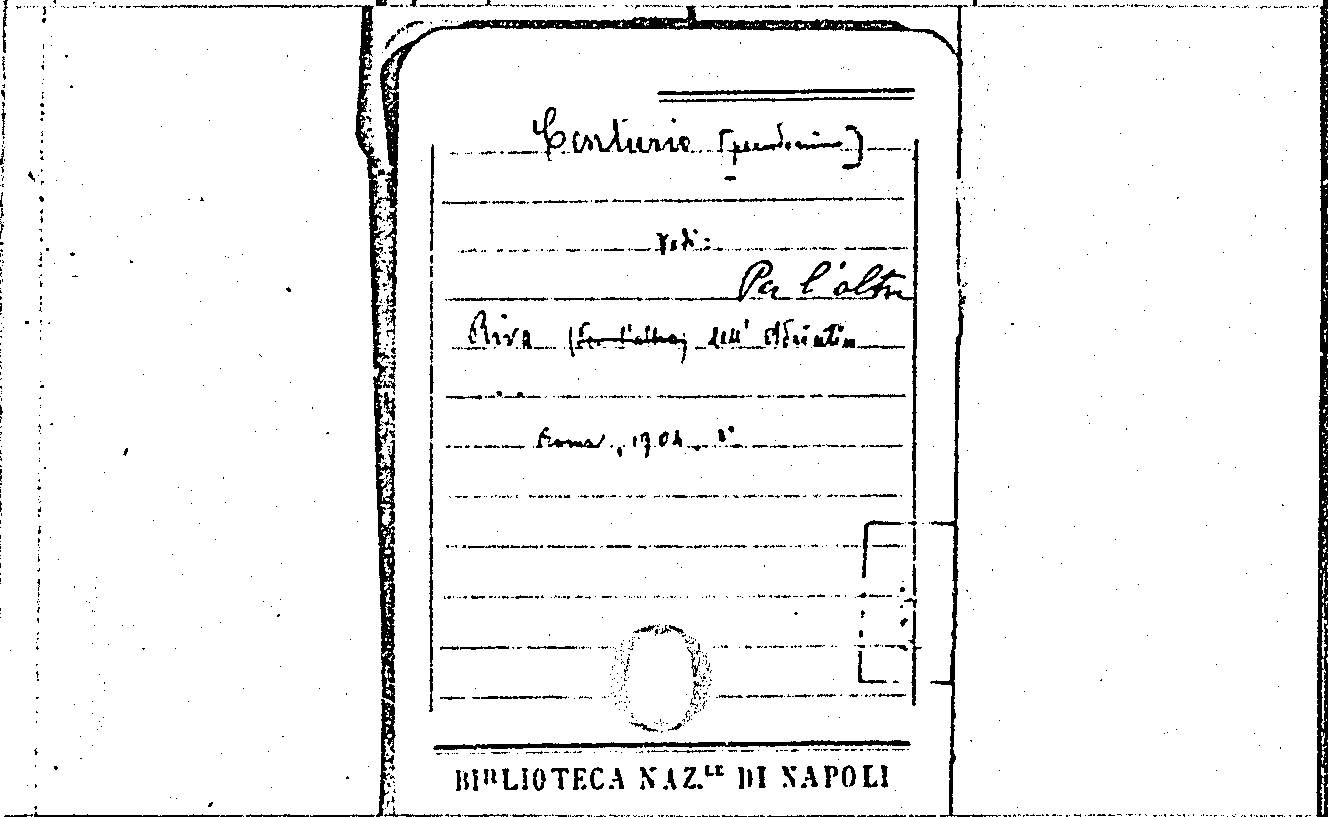 Centurio [pseudonimo]
Vedi:
Per l'altra
Riva (Per l'altra) dell' Adriatico
Roma, 1904. 8°
BIBLIOTECA NAZ.LE DI NAPOLI